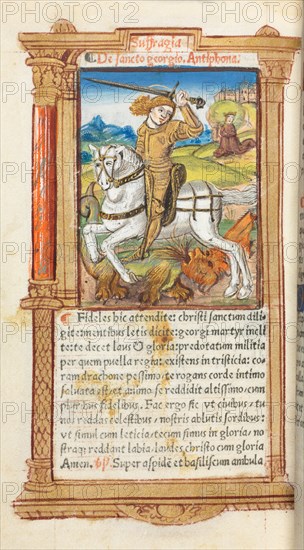 Suffragia
De sancto georgio. Antiphona.
Fideles hic attendite: christi sanctum dili
gite: mentibus letis dicite: georgi martyr incli
te: te decet laus & gloria: predotatum militia
per quem puella regia: existens in tristicia: co
ram drachone pessimo: te rogans corde intimo
saluata est: et animo se reddidit altissimo: cum
pluribus fidelibus. Fac ergo sic vt ciuibus: tu
nos reddas celestibus: nostris ablutis sordibus:
vt simul cum leticia: tecum simus in gloria: no
straq; reddant labia: laudes christo cum gloria
Amen. Super aspidē et basiliscum ambula
PHOTO12